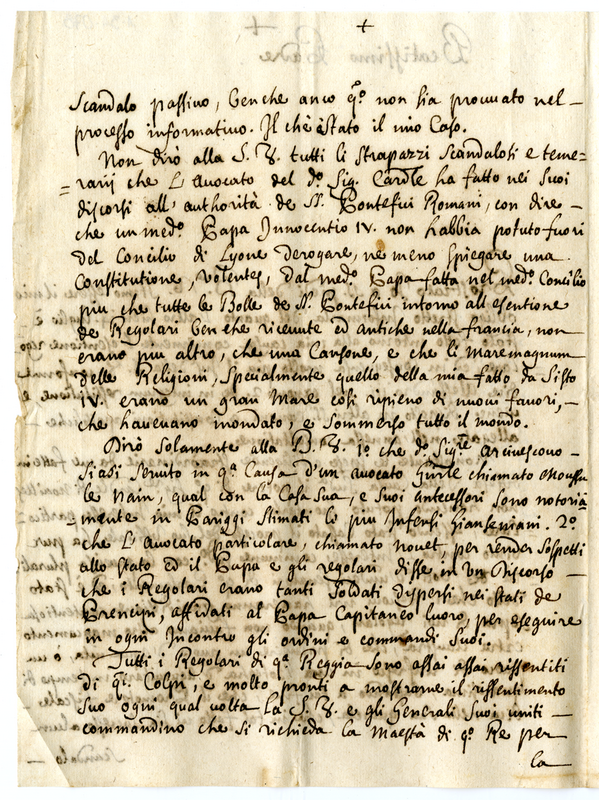 +
scandalo passivo, benche anco q.o non sia provvato nel
processo informativo. Il chè è stato il mio Caso.
Non dirò alla S. V. tutti li strapazzi scandalosi e teme=
=rarij che L'avocato del d.o Sig. Cardle ha fatto nei suoi
discorsi all'authorità de SS. Pontefici Romani, con dire
che un med.o Papa Innocentio IV. non habbia potuto fuori
del Concilio di Lyone derogare, ne meno spiegare una
Constitutione, volentes, dal med.o Papa fatta nel med.o Concilio
piu che tutte le Bolle de SS. Pontefici intorno all'esentione
de Regolari benche ricevute ed antiche nella francia, non
erano piu altro, che una Canzone, e che li Maremagnum
delle Religioni, specialmente quello della mia fatto da Sisto
IV. erano un gran Mare così ripieno di nuovi favori,
che havevano mondato, e sommerso tutto il mondo.
Dirò solamente alla B. V. 1.o che d.o Sig.re Arcivescovo
siasi servito in q.a Causa d'un avocato Gnrle chiamato Monsu
le Nain, qual con la Casa sua, e suoi antecessori sono notoria
=mente in Pariggi stimati li piu infensi Gianseniani. 2.o
che L'avocato particolare, chiamato nouet, per render sospetti
allo stato ed il Papa e gli regolari disse in un Discorso
che i Regolari erano tanti soldati dispersi nei stati de
Prencipi, affidati al Papa Capitaneo luoro, per eseguire
in ogni incontro gli ordini e commandi suoi.
Tutti i Regolari di q.a Reggia sono assai assai rissentiti
di q.i Colpi, e molto pronti a mostrarne il rissentimento
suo ogni qual volta La S. V. e gli Generali suoi uniti
commandino che si richieda la Maestà di q.o Re per
la